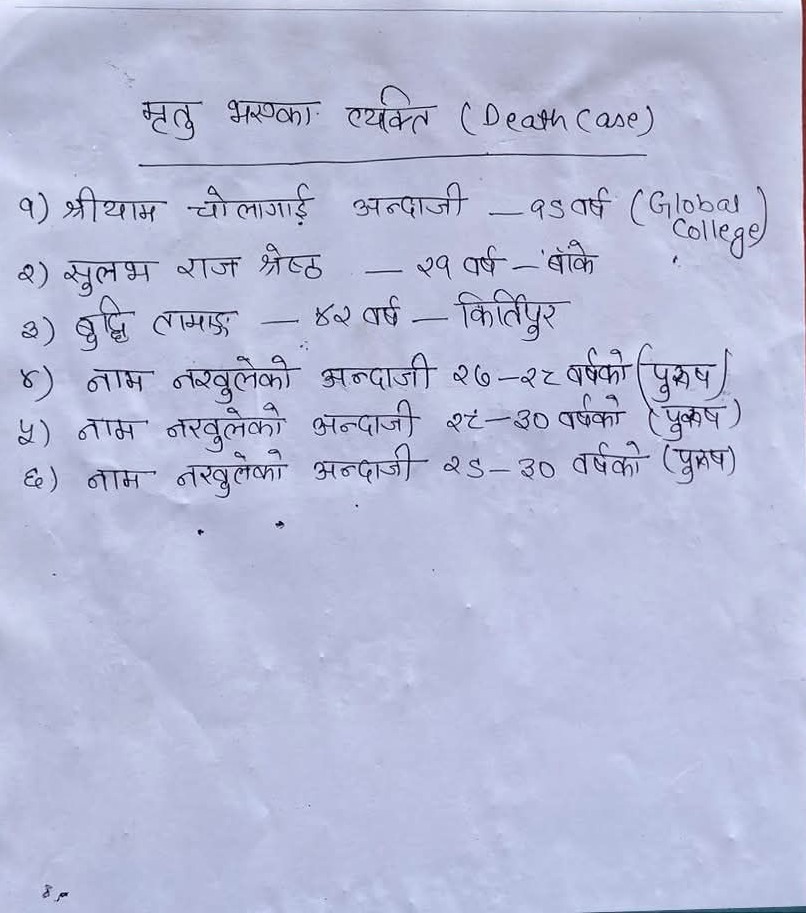 मृत्यु भएका व्यक्ति (Death Case)
१) श्रीयाम चोलागाई अन्दाजी – १९ वर्ष (Global College)
२) सुलभ राज श्रेष्ठ – २१ वर्ष – बाँके
३) बुद्धि तामाङ – ४२ वर्ष – किर्तिपुर
४) नाम नखुलेको अन्दाजी २७–२८ वर्षको (पुरुष)
५) नाम नखुलेको अन्दाजी २८–३० वर्षको (पुरुष)
६) नाम नखुलेको अन्दाजी २९–३० वर्षको (पुरुष)